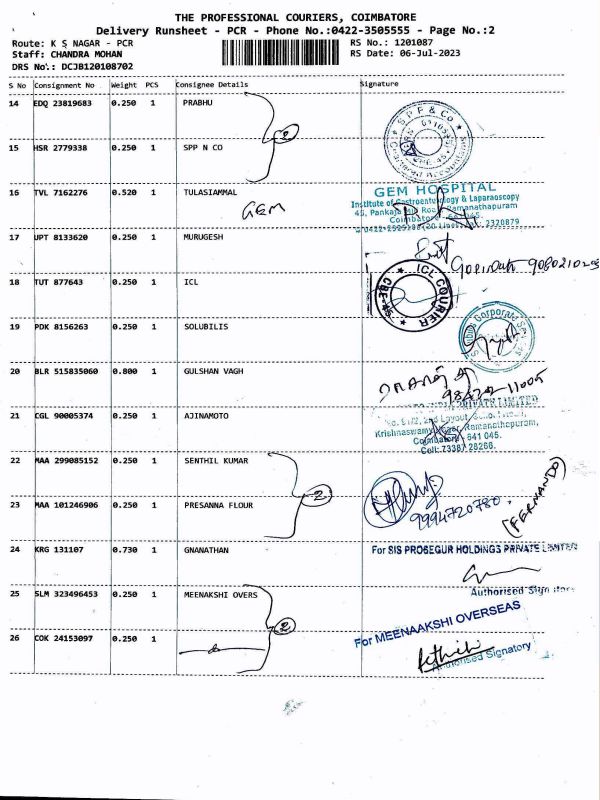 THE PROFESSIONAL COURIERS, COIMBATORE
Delivery Runsheet - PCR - Phone No.:0422-3505555 - Page No.:2
Route: K S NAGAR - PCR
RS No.: 1201087
Staff: CHANDRA MOHAN
RS Date: 06-Jul-2023
DRS No.: DCJB120108702
S No Consignment No Weight PCS Consignee Details Signature
14 EDQ 23819683 0.250 1 PRABHU
2
SPP & Co
Chartered Accountants
15 HSR 2779338 0.250 1 SPP N CO
16 TVL 7162276 0.520 1 TULASIAMMAL
GEM
GEM HOSPITAL
Institute of Gastroenterology & Laparaoscopy
45, Pankaja Mill Road, Ramanathapuram
Coimbatore - 641 045.
2320879
17 UPT 8133620 0.250 1 MURUGESH
18 TUT 877643 0.250 1 ICL
ICL COURIER
19 PDK 8156263 0.250 1 SOLUBILIS
Corporate
20 BLR 515835060 0.800 1 GULSHAN VAGH
21 CGL 90005374 0.250 1 AJINAMOTO
PRIVATE LIMITED
Krishnaswamy Nagar, Ramanathapuram,
Coimbatore - 641 045.
Cell: 7338 28266.
22 MAA 299085152 0.250 1 SENTHIL KUMAR
2
23 MAA 101246906 0.250 1 PRESANNA FLOUR
9994720780.
(FERNANDO)
24 KRG 131107 0.730 1 GNANATHAN
For SIS PROSEGUR HOLDINGS PRIVATE LIMITED
Authorised Signatory
25 SLM 323496453 0.250 1 MEENAKSHI OVERS
2
For MEENAAKSHI OVERSEAS
26 COK 24153097 0.250 1
Authorised Signatory